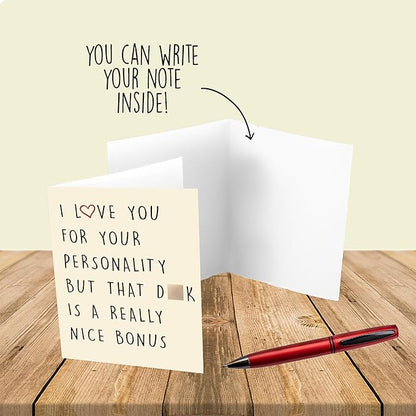 YOU CAN WRITE
YOUR NOTE
INSIDE!
I LOVE YOU
FOR YOUR
PERSONALITY
BUT THAT D K
IS A REALLY
NICE BONUS